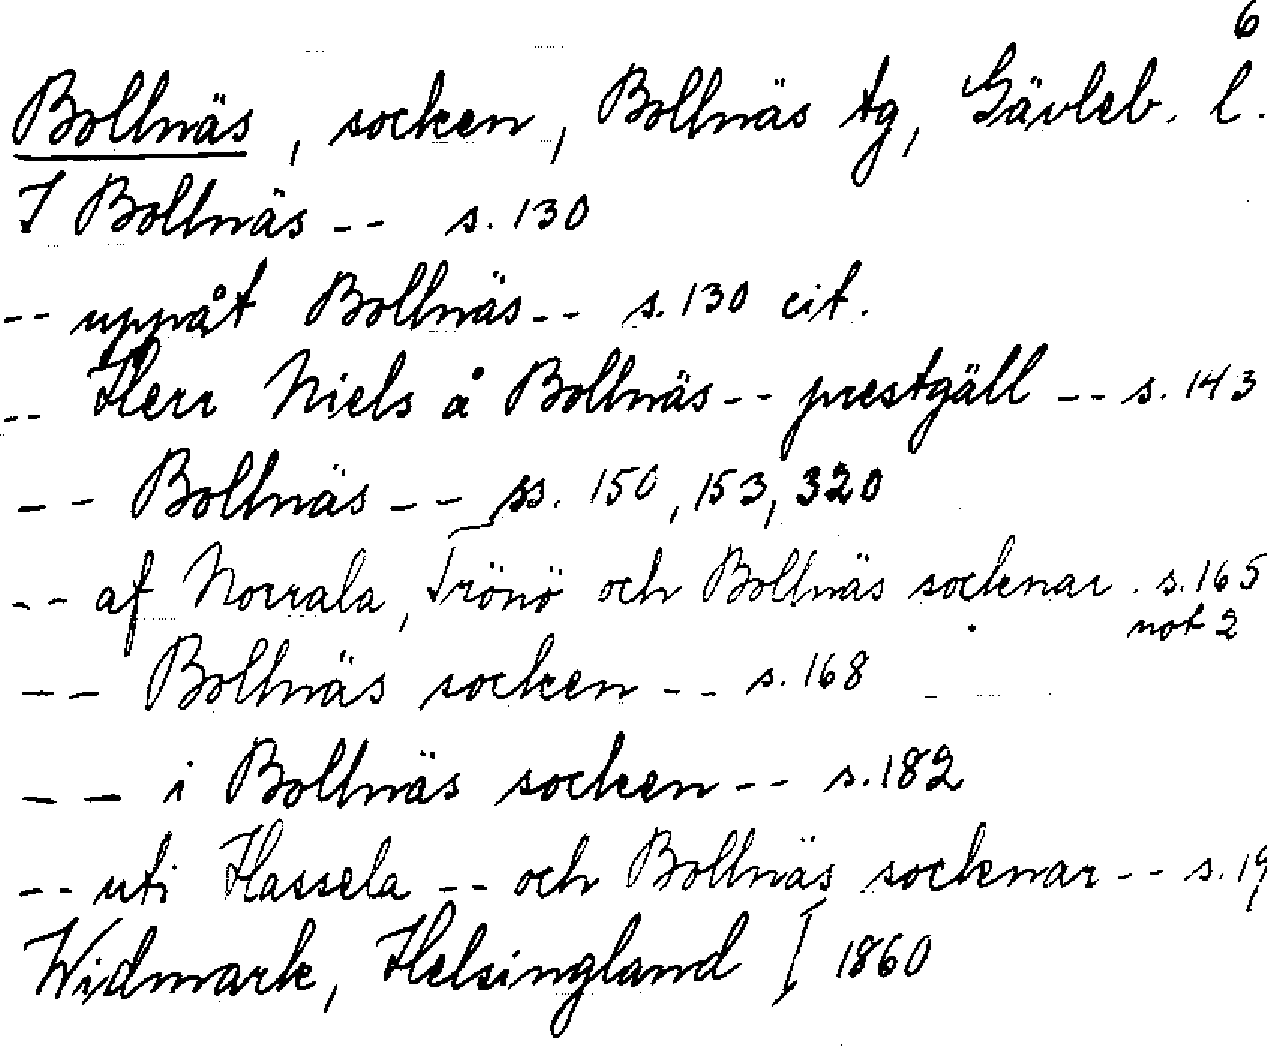 6
Bollnäs, socken, Bollnäs tg, Gävleb. l.
I Bollnäs -- s. 130
-- uppåt Bollnäs -- s. 130 cit.
-- Herr Niels å Bollnäs -- prestgäll -- s. 143
-- Bollnäs -- ss. 150, 153, 320
-- af Norrala, Trönö och Bollnäs socknar. s. 165
not 2
-- Bollnäs socken -- s. 168
-- i Bollnäs socken -- s. 182
-- uti Hassela -- och Bollnäs socknar -- s. 19
Widmark, Helsingland I 1860